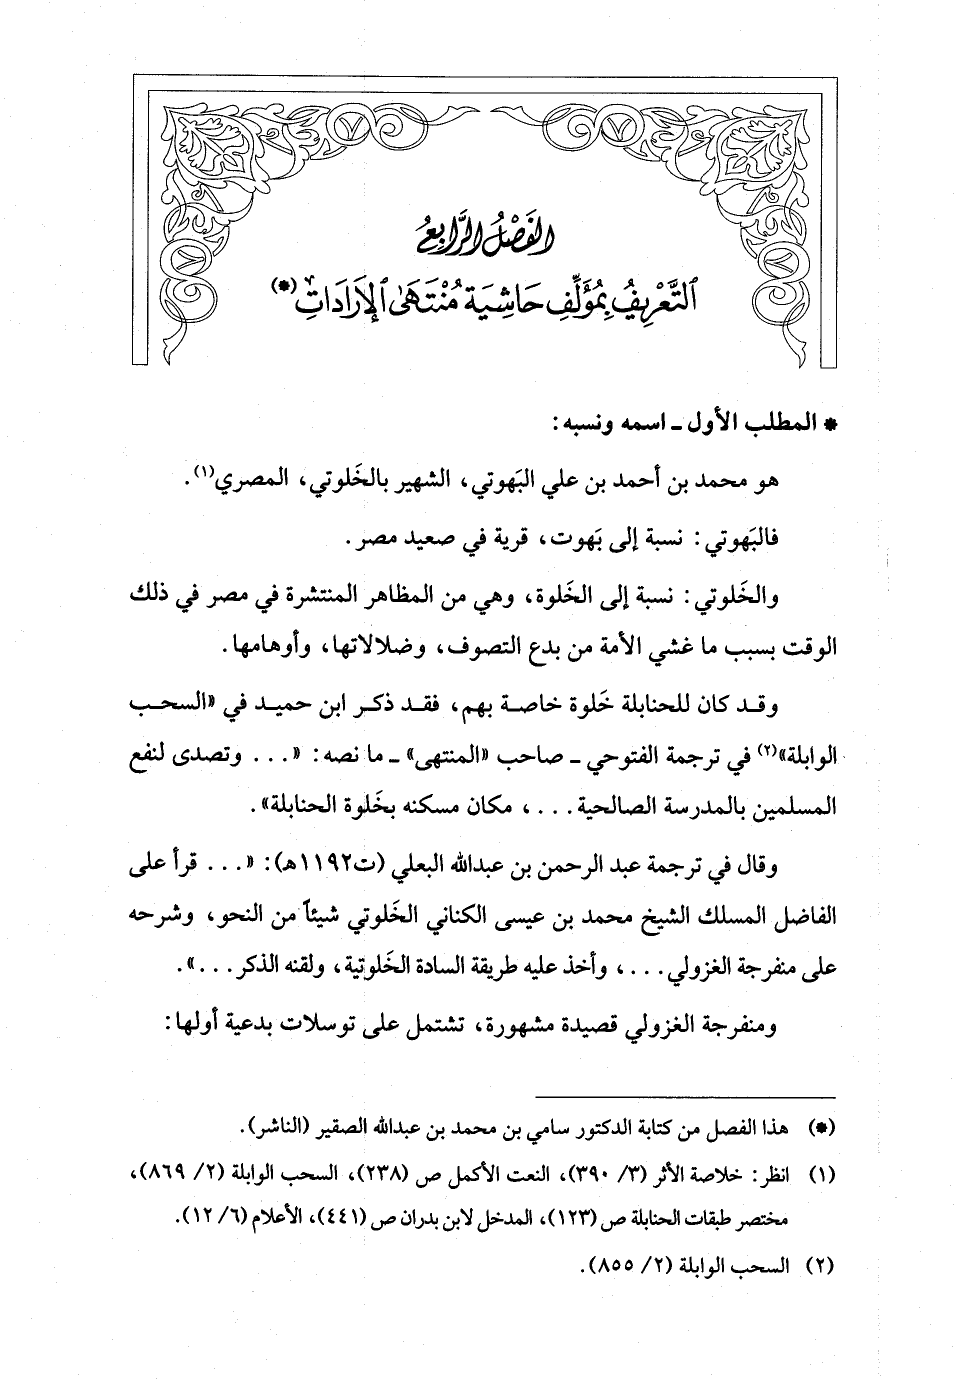 الفَصْلُ الرَّابِعُ
التَّعْرِيفُ بِمُؤَلِّفِ حَاشِيَة مُنْتَهَىٰ الإرَادَاتِ(*)
* المطلب الأول ـ اسمه ونسبه:
هو محمد بن أحمد بن علي البَهوتي، الشهير بالخَلوتي، المصري(١).
فالبَهوتي: نسبة إلى بَهوت، قرية في صعيد مصر.
والخَلوتي: نسبة إلى الخَلوة، وهي من المظاهر المنتشرة في مصر في ذلك
الوقت بسبب ما غشي الأمة من بدع التصوف، وضلالاتها، وأوهامها.
وقد كان للحنابلة خَلوة خاصة بهم، فقد ذكر ابن حميد في «السحب
الوابلة»(٢) في ترجمة الفتوحي ـ صاحب «المنتهى» ـ ما نصه: «... وتصدى لنفع
المسلمين بالمدرسة الصالحية ...، مكان مسكنه بخَلوة الحنابلة».
وقال في ترجمة عبد الرحمن بن عبدالله البعلي (ت١١٩٢هـ): «... قرأ على
الفاضل المسلك الشيخ محمد بن عيسى الكناني الخَلوتي شيئاً من النحو، وشرحه
على منفرجة الغزولي ...، وأخذ عليه طريقة السادة الخَلوتية، ولقنه الذكر...».
ومنفرجة الغزولي قصيدة مشهورة، تشتمل على توسلات بدعية أولها:
(*) هذا الفصل من كتابة الدكتور سامي بن محمد بن عبدالله الصقير (الناشر).
(١) انظر: خلاصة الأثر (٣/ ٣٩٠)، النعت الأكمل ص (٢٣٨)، السحب الوابلة (٢/ ٨٦٩)،
مختصر طبقات الحنابلة ص (١٢٣)، المدخل لابن بدران ص (٤٤١)، الأعلام (٦/ ١٢).
(٢) السحب الوابلة (٢/ ٨٥٥).